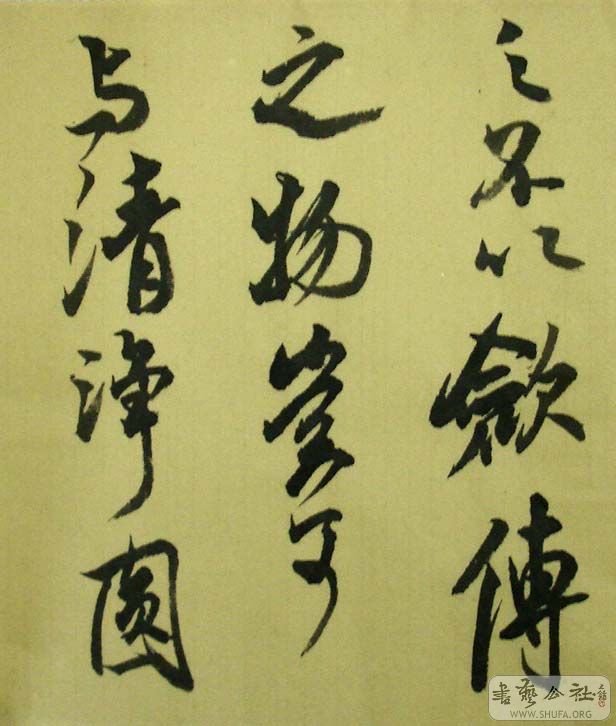 之以歛傅
之物豈可
与清淨圓
書藝公社
WWW.SHUFA.ORG